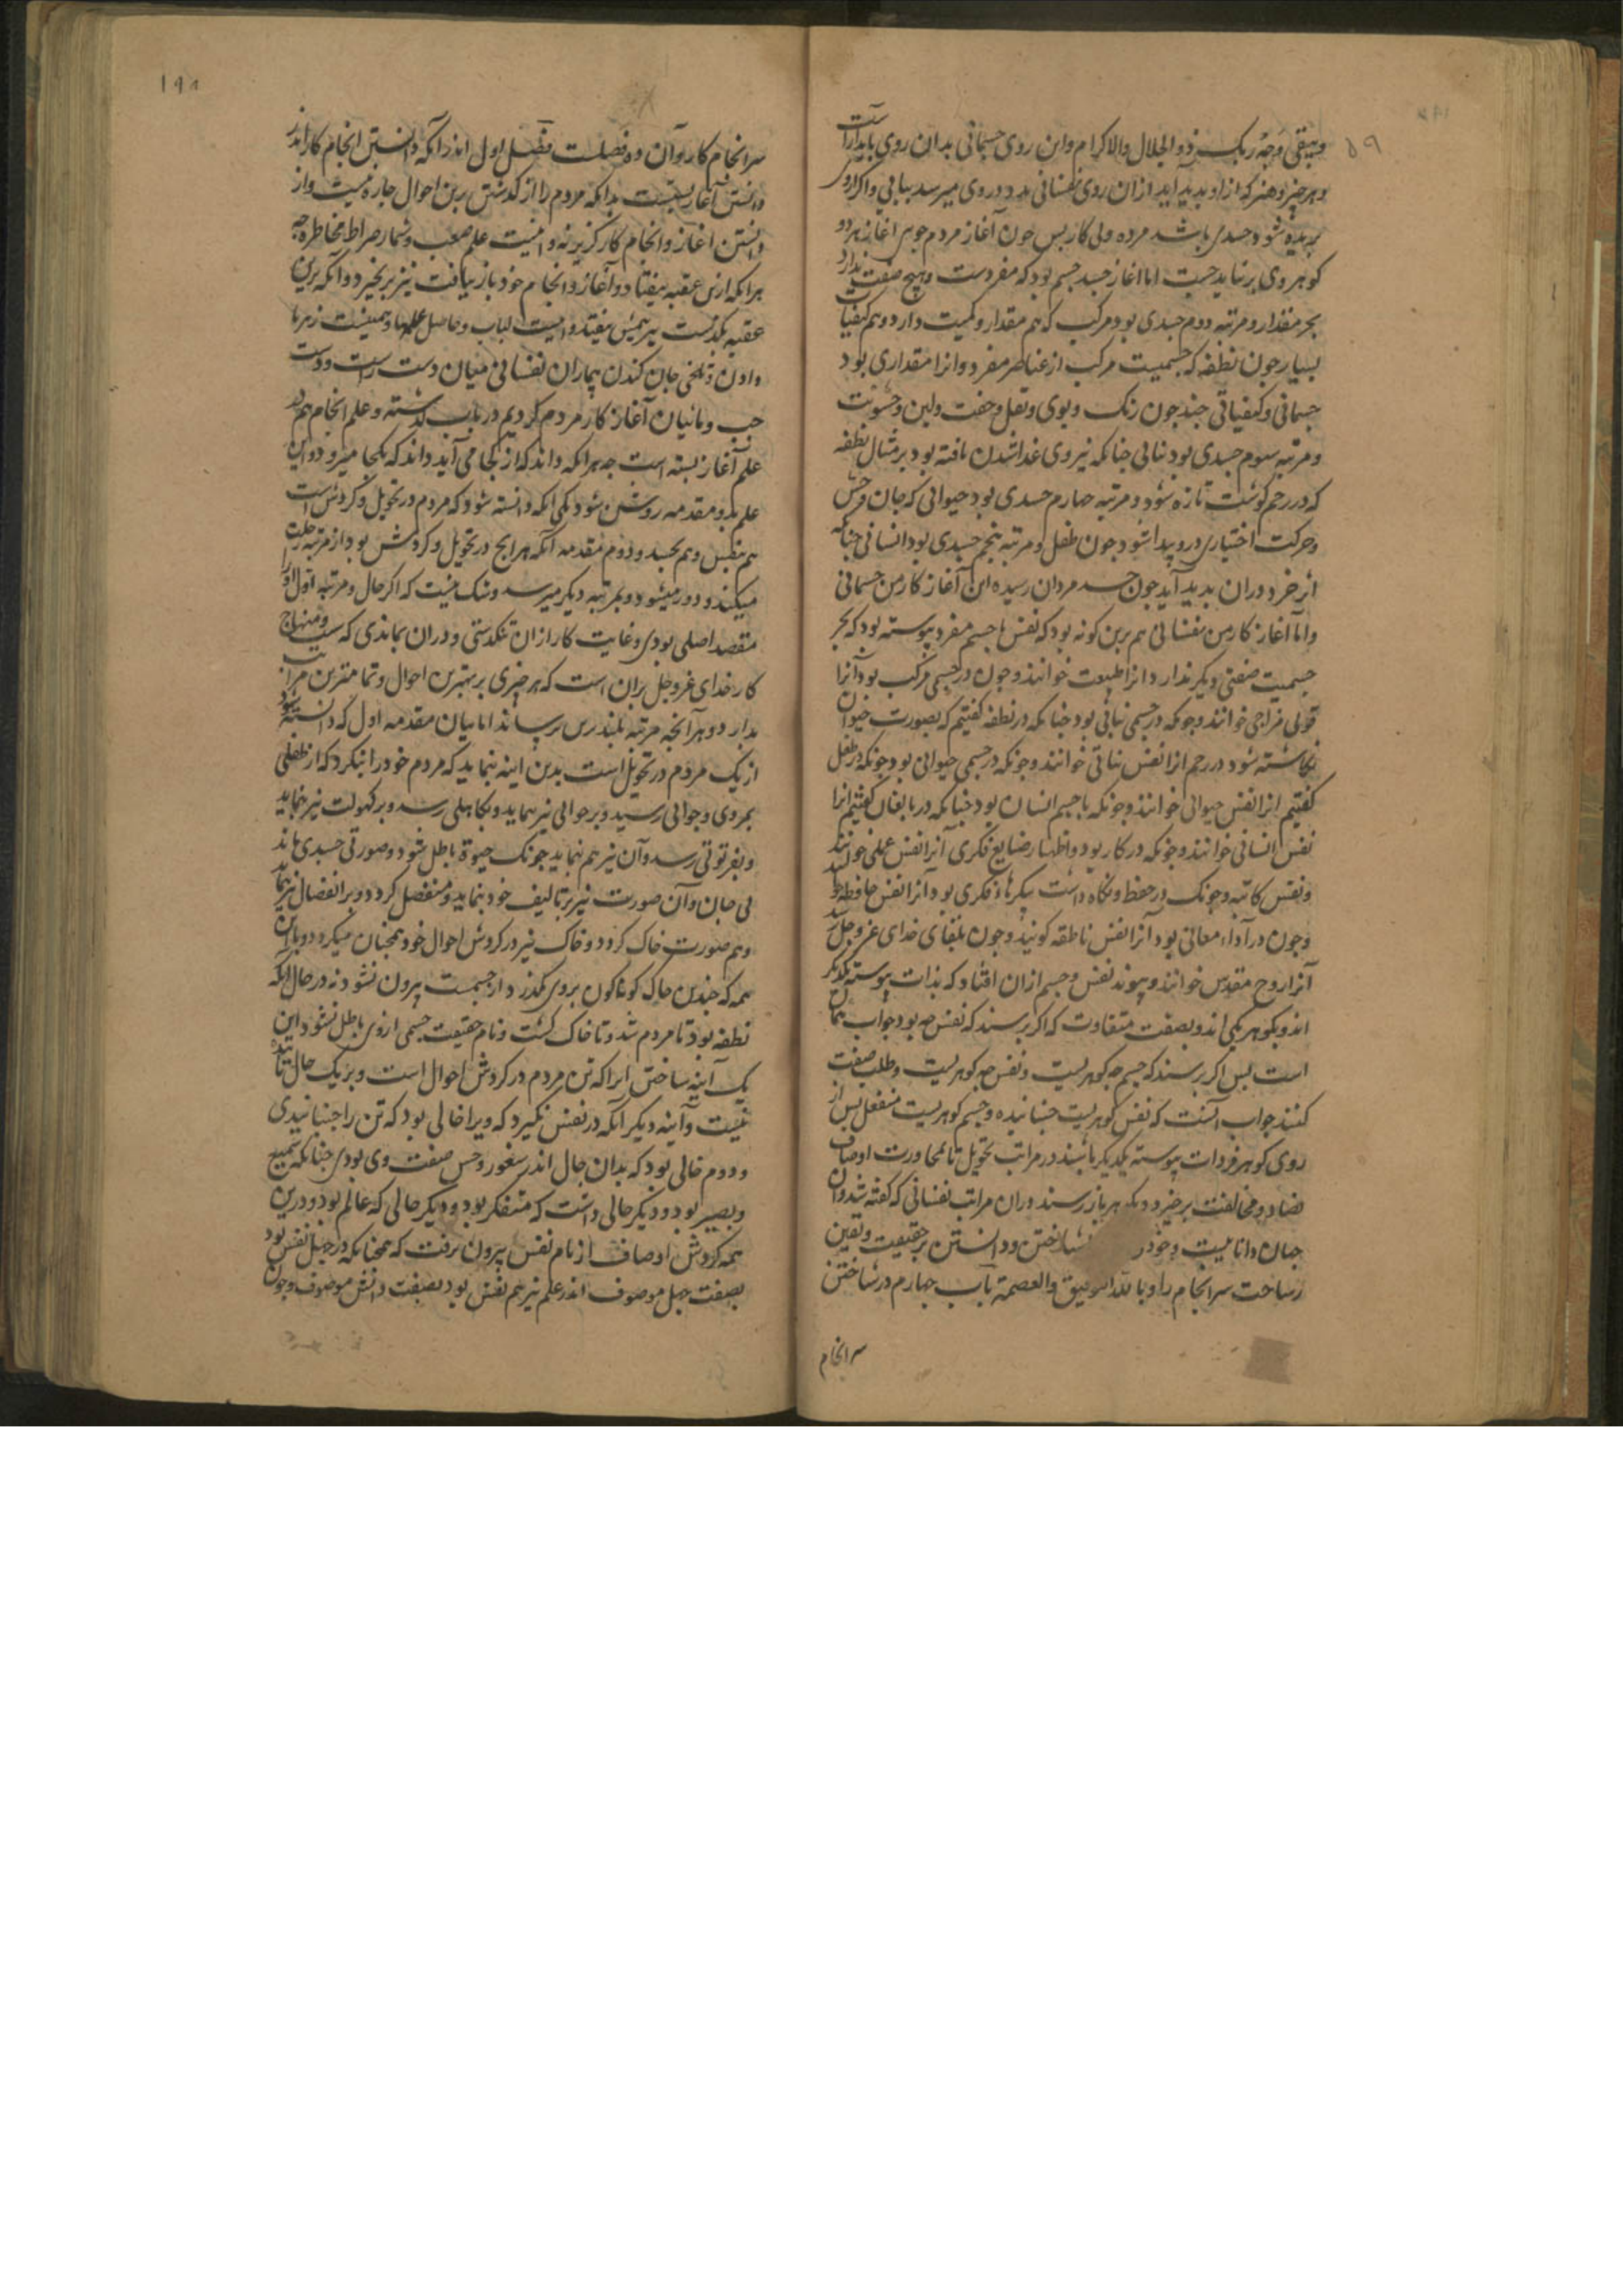 ویبقی وجه ربک ذو الجلال والاکرام واین روی جسمانی بدان روی پایدار است
وهر چیز وهنر که از او بدید آید از ان روی نفسانی بدو روی میرسد بباقی واکر از وی
بریده شود جسدی باشد مرده وبی کار بس جون آغاز مردم جوئی آغاز هر دو
کوهر وی برباید جست اما اغاز جسد جسم بود که مفردست وهیچ صفت ندارد
بجز مقدار ومرتبه دوم جسدی بود مرکب که هم مقدار وکمیت دارد وهم کیفیات
بسیار جون نطفه که جسمیست مرکب از عناصر مفرد وانرا مقداری بود
جسمانی وکیفیاتی جند جون رنک وبوی وثقل وخفت ولین وخشونت
ومرتبه سوم جسدی بود نباتی جنانکه نیروی غذا شدن یافته بود بر مثال نطفه
که در رحم کوشت تازه شود ومرتبه جهارم جسدی بود حیوانی که جان وحس
وحرکت اختیاری درو بیدا شود جون طفل ومرتبه پنجم جسدی بود انسانی جنانکه
اثر خرد دران بدید آید جون جسد مردان رسیده این آغاز کار من جسمانی
واما آغاز کار من نفسانی هم برین کونه بود که نفس با جسم مفرد پیوسته بود که بجز
جسمیت صفتی دیکر ندارد انرا طبیعت خوانند وجون در جسمی مرکب بود آنرا
قوای مزاجی خوانند وجونکه در جسمی نباتی بود جنانکه در نطفه کفتیم که بصورت حیوان
نکاشته شود در رحم انرا نفس نباتی خوانند وجونکه در جسمی حیوانی بود جونکه در طفل
کفتیم انرا نفس حیوانی خوانند وجونکه با جسم انسان بود جنانکه در بالغان کفتیم انرا
نفس انسانی خوانند وجونکه در کار بود واظهار صنایع فکری آنرا نفس عملی خوانند
ونفس کاتبه وجونک در حفظ ونکاه داشت پیکرهاء فکری بود آنرا نفس حافظه خوانند
وجون در آداء معانی بود آنرا نفس ناطقه کویند وجون بلقای خدای عز وجل رسد
آنرا روح مقدس خوانند وپیوند نفس وجسم ازان افتاد که بذات پیوسته یکدیکر
اند وبکوهر یکی اند وبصفت متفاوت که اکر برسند که نفس جه بود جواب همان
است بس اکر برسند که جسم جه کوهریست ونفس جه کوهریست وطلب صفت
کنند جواب آنست که نفس کوهریست جنبانیده وجسم کوهریست منفعل بس از
روی کوهر فردات پیوسته یکدیکر باشند در مراتب تحویل تا بمجاورت اوصاف
تضاد ومخالفت برخیزد ودیکر بهر باز رسند دران مراتب نفسانی که کفته شد وان
جهان داناییست وخود را شناختن ودانستن بر حقیقت ویقین
وساخت سرانجام را وبالله التوفیق والعصمة باب جهارم در شناختن
سرانجام
سرانجام کار وآن دو فصلست فصل اول اندر انکه دانستن انجام کار اندر
دانستن آغاز بستست بدانکه مردم را از کذشتن برین احوال جاره نیست واز
دانستن اغاز وانجام کار کزیر نه واینست علم صعب وشمار صراط مخاطره جه
هرانکه ازین عقبه بیفتاد وآغاز وانجام خود باز نیافت نیز بر نخیزد وآنکه برین
عقبه بکذشت نیز هیچش نیفتد واینست لباب وحاصل علمها وهمینست زهر با
دادن وتلخی جان کندن بیماران نفسانی میان دست راست ودست
جب ومابیان آغاز کار مردم کردیم در باب کذشته وعلم انجام هم در
علم آغاز بسته است جه هرانکه داند که از کجا می آید داند که بکجا میرود واین
علم بدو مقدمه روشن شود یکی انکه دانسته شود که مردم در تحویل وکردش است
هم بنفس وهم بجسد ودوم مقدمه انکه هر انج در تحویل وکردش بود از مرتبه رحلت
میکند ودور میشود وبمرتبه دیکر میرسد وشک نیست که اکر حال ومرتبه اول او را
مقصد اصلی بودی وغایت کار ازان نکذشتی ودران بماندی که سنت ومنهاج
کار خدای عز وجل بران است که هر چیزی بر بهترین احوال وتمامترین مراتب
بدارد وهر آنچه مرتبه بلندترش برساند اما بیان مقدمه اول که دانسته شود
از یک مردم در تحویل است بدین اینه بنماید که مردم خود را بنکرد که از طفلی
بمردی وجوانی رسید وبر جوانی نیز نماید وبکاهلی رسد وبر کهولت نیز نماید
وبفرتوتی رسد وآن نیز هم نماید جونک حیوة باطل شود وصورتی جسدی ماند
بی جان وآن صورت نیز بر تالیف خود نماید ومنفصل کردد وبر انفصال نیز نماید
وهم صورت خاک کردد وخاک نیز در کردش احوال خود همجنان میکردد وبا این
همه که جندین حال کوناکون بروی بکذرد از جسمیت بیرون نشود نه در حال انکه
نطفه بود تا مردم شد وتا خاک کشت ونام حقیقت جسمی ازوی باطل نشود این
یک آینه ساختن انرا که تن مردم در کردش احوال است وبر یک حال تابنده
نیست وآینه دیکر آنکه در نفس نکیرد که ویرا حالی بود که تن را جنبانیدی
ودوم حالی بود که بدان حال اندر شعور وحس صفت وی بودی جنانکه سمیع
وبصیر بود ودیکر حالی داشت که متفکر بود ودیکر حالی که عالم بود ودرین
همه کردش اوصاف از نام نفس بیرون نرفت که همجنانکه در جهل نفس بود
بصفت جهل موصوف اندر علم نیز هم نفس بود بصفت دانش موصوف وجون